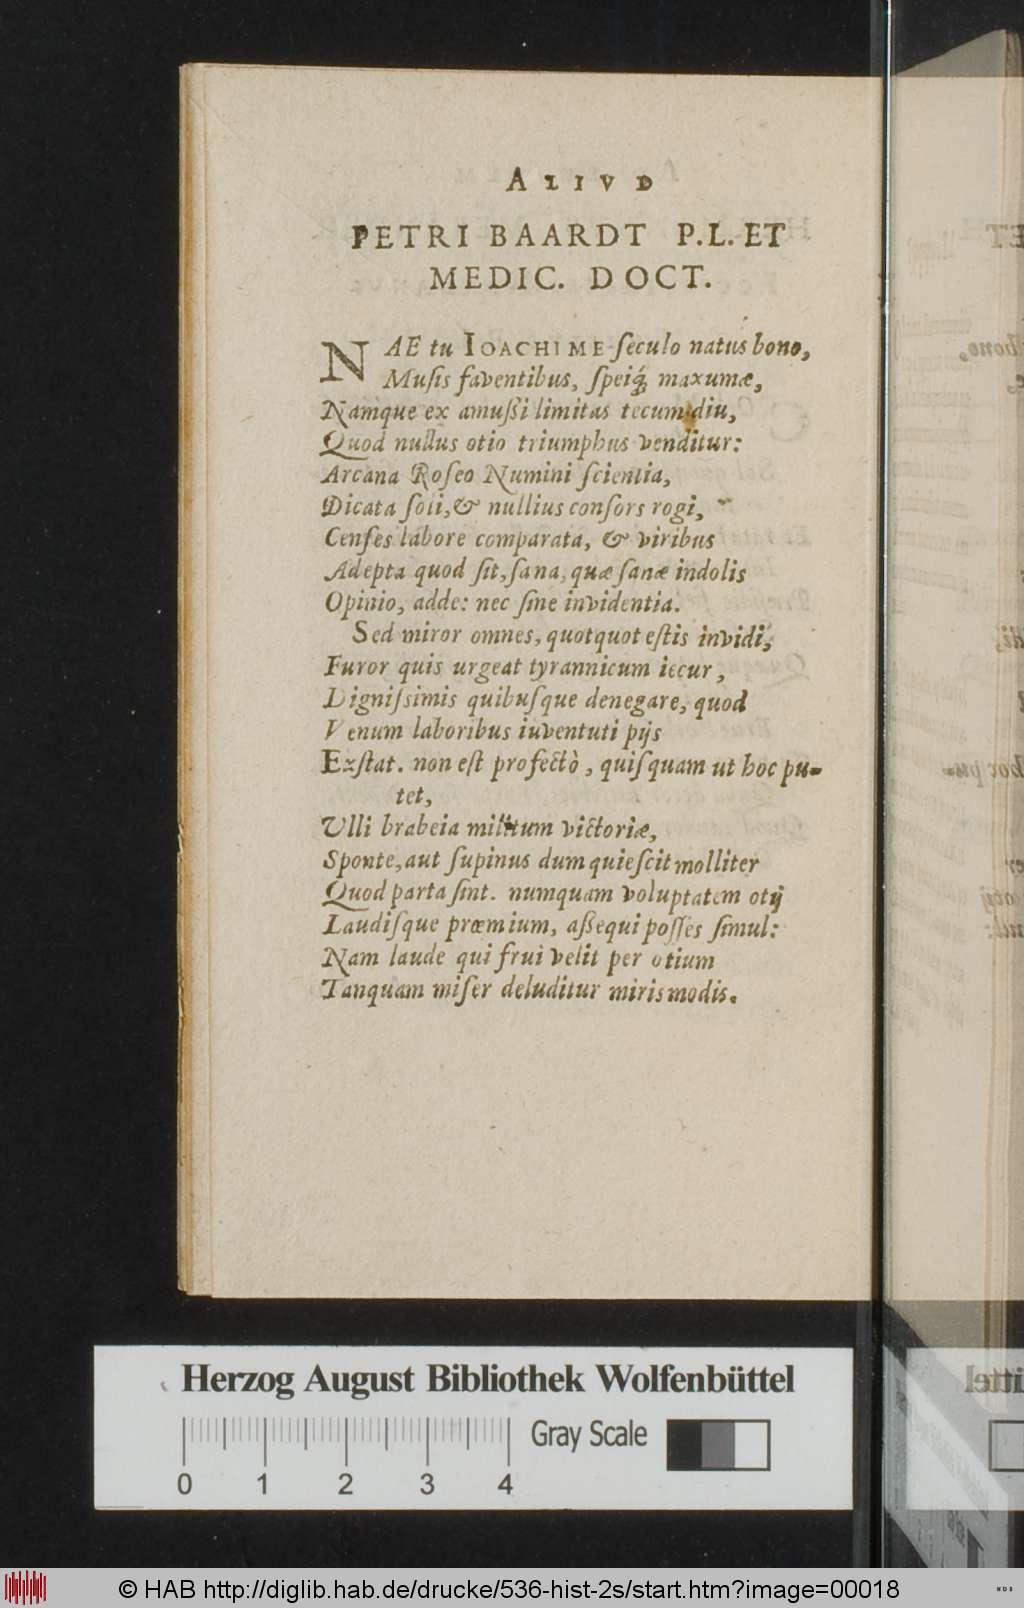 ALIVD
PETRI BAARDT P.L. ET
MEDIC. DOCT.
NAE tu IOACHIME ſeculo natus bono,
Muſis faventibus, ſpeiq́; maxumæ,
Namque ex amuſſi limitas tecum diu,
Quod nullus otio triumphus venditur:
Arcana Roſeo Numini ſcientia,
Dicata ſoli, & nullius conſors rogi,
Cenſes labore comparata, & viribus
Adepta quod ſit, ſana, quæ ſanæ indolis
Opinio, adde: nec ſine invidentia.
Sed miror omnes, quotquot eſtis invidi,
Furor quis urgeat tyrannicum iecur,
Digniſsimis quibuſque denegare, quod
Venum laboribus iuventuti pijs
Exſtat. non eſt profectò, quiſquam ut hoc pu-
tet,
Ulli brabeia militum victoriæ,
Sponte, aut ſupinus dum quieſcit molliter
Quod parta ſint. numquam voluptatem otij
Laudiſque præmium, aßequi poſſes ſimul:
Nam laude qui frui velit per otium
Tanquam miſer deluditur miris modis.
Herzog August Bibliothek Wolfenbüttel
0 1 2 3 4 Gray Scale
© HAB http://diglib.hab.de/drucke/536-hist-2s/start.htm?image=00018